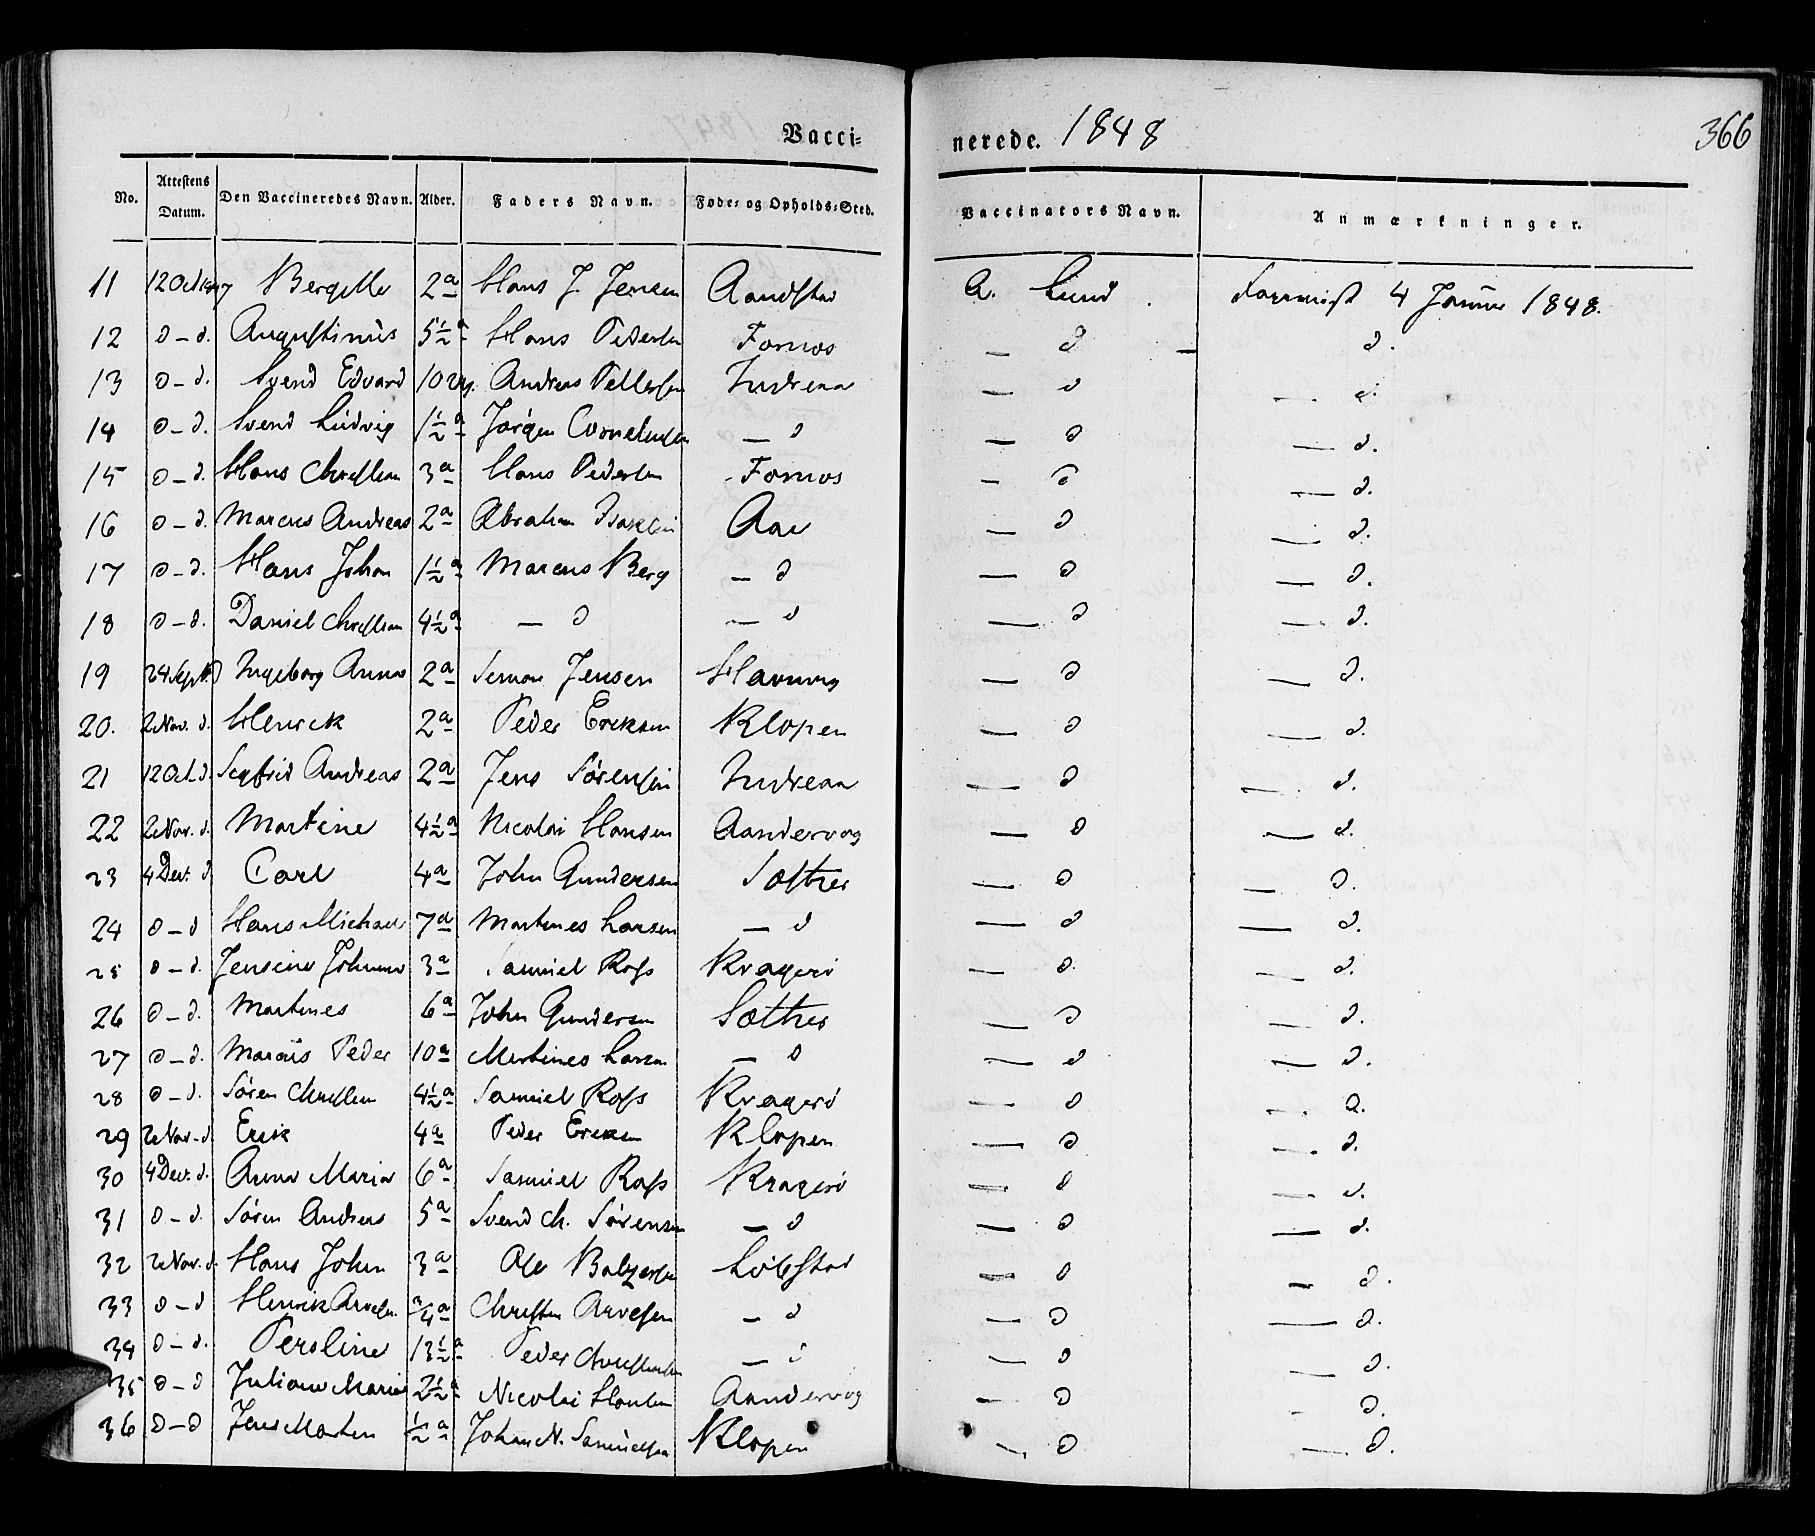 Vacci= nerede. 1848 366
No. Attestens Datum. Den Vaccineredes Navn. Alder. Faders Navn. Føde= og Opholds=Sted. Vaccinators Navn. Anmærkninger.
11 12 Oct 1847 2 a Hans J. Jensen Aandstad A. Lund Foreviist 4 Januar 1848.
12 d – d. Augustinus 5 1/2 a Hans Pedersen Fornøs — d — d.
13 d – d. Svend Edvard 10 Andreas Pettersen Indreaa — d — d.
14 d – d. Svend Ludvig 1 1/2 a Jørgen Corneliusen — d — d — d.
15 d – d. Hans Christian 3 a Hans Pedersen Fornøs — d — d.
16 d – d. Marcus Andreas 2 a Abraham Isaksen Aae — d — d.
17 d – d. Hans Johan 1 1/2 a Marcus Berg — d — d — d.
18 d – d. Daniel Christian 4 1/2 a — d — d — d — d.
19 24 Sept. d Ingeborg Anna 2 a Simon Jensen — d — d.
20. 2 Nov. d. Henrick 2 a Peder Ericksen Klopen — d — d.
21 12 Oct. d. Sigfrid Andreas 2 a Jens Sørensen Indreaa — d — d.
22 2 Nov. d. Martine 4 1/2 a Nicolai Hansen Aandervog — d — d.
23 4 Dec. d Carl 4 a John Gundersen Sættres — d — d.
24 d – d Hans Michael 7 a Martines Larsen — d — d — d.
25 d – d. Jensine Johanna 3 a Samuel Rofs Krageri — d — d.
26 d – d. Martines 6 a John Gundersen Sættres — d — d.
27 d – d. Marcus Peder 10 a Martines Larsen — d — d — d.
28 d – d. Søren Christian 4 1/2 a Samuel Rofs Krageri — d — d.
29 2 Nov – d. Erik 4 a Peder Ericksen Klopen — d — d.
30 4 Dec. d. Anna Maria 6 a Samuel Rofs Krageri — d — d.
31 d – d. Søren Andreas 5 a Svend Ch. Sørensen — d — d — d.
32 2 Nov. d. Hans John 3 a Ole Balzersen Løbstad — d — d.
33 d – d Henrik Arvesen 3/4 a Christen Arvesen — d — d — d.
34 d – d. Peroline 13 1/2 a Peder Christensen — d — d — d.
35 d – d Juliane Marie 2 1/2 a Nicolai Hansen Aandervog — d — d.
36 d – d Jens Morten 1/2 a Johan N. Samuelsen Klopen — d — d.